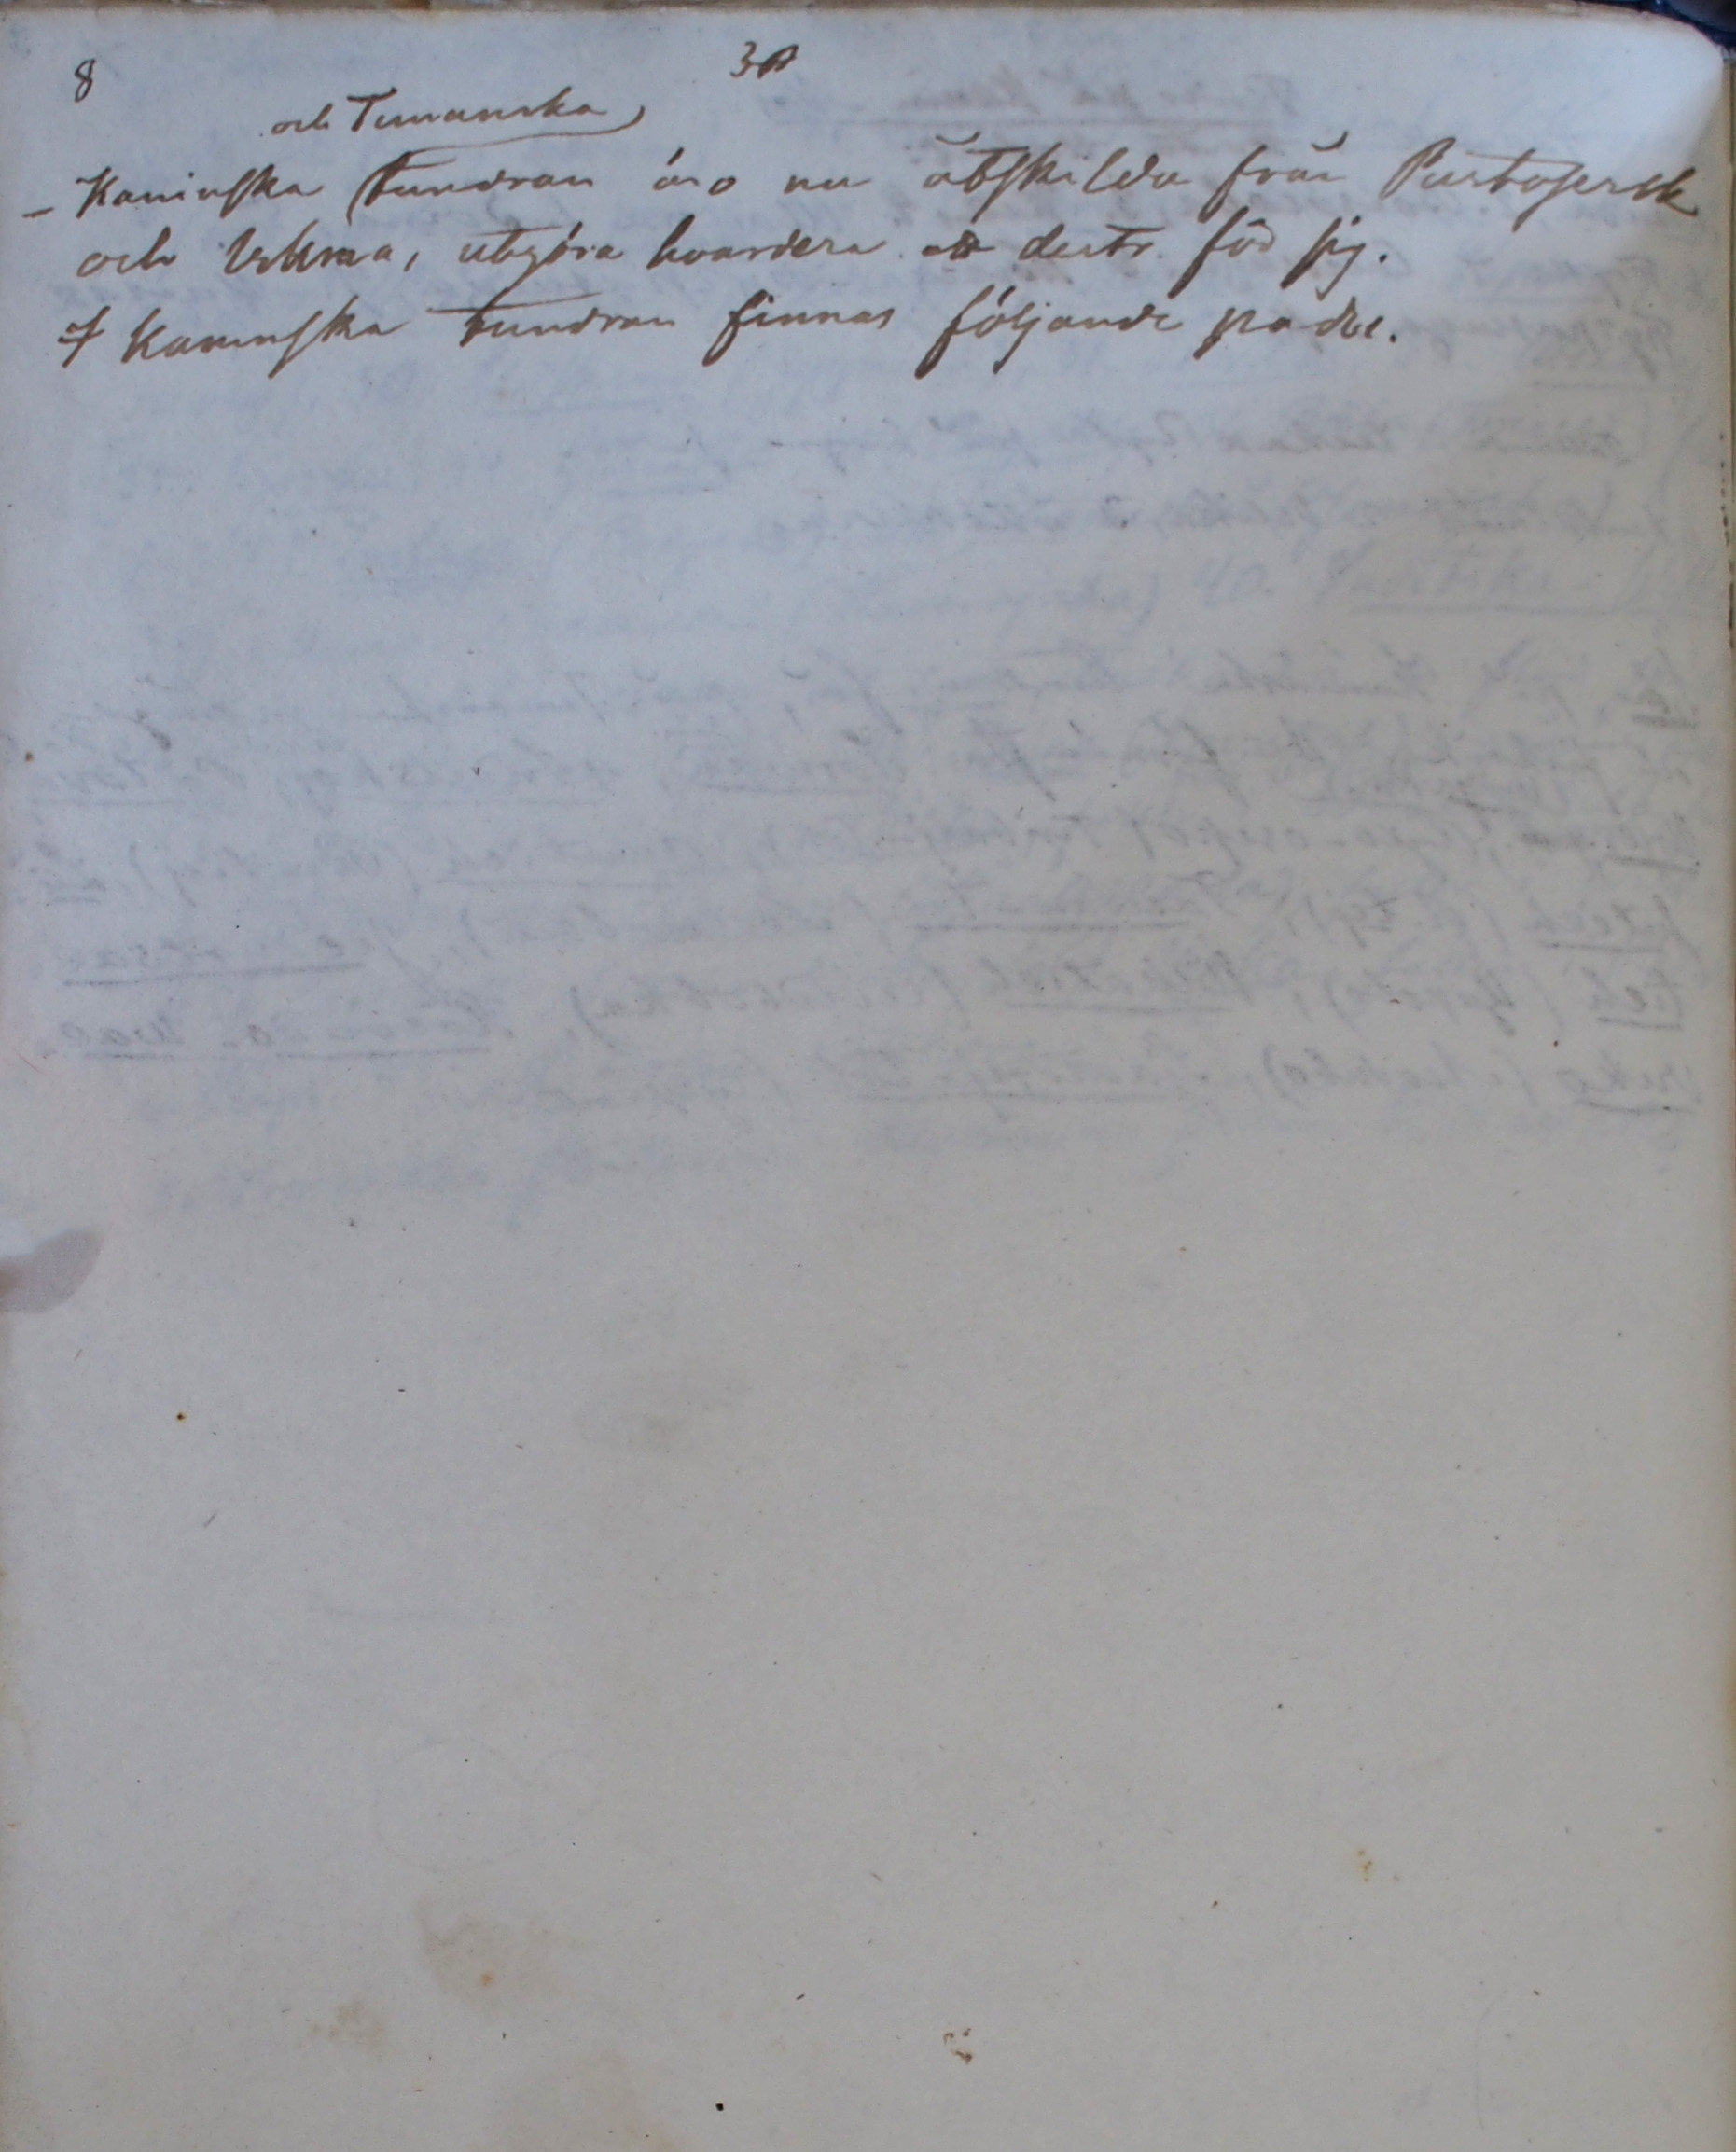 8
30
och Timanska
– Kaninska Tundran äro nu åtskilda från Pustosersk
och Ishma, utgöra hvardera ett distr. för sig.
I Kaninska Tundran finnas följande